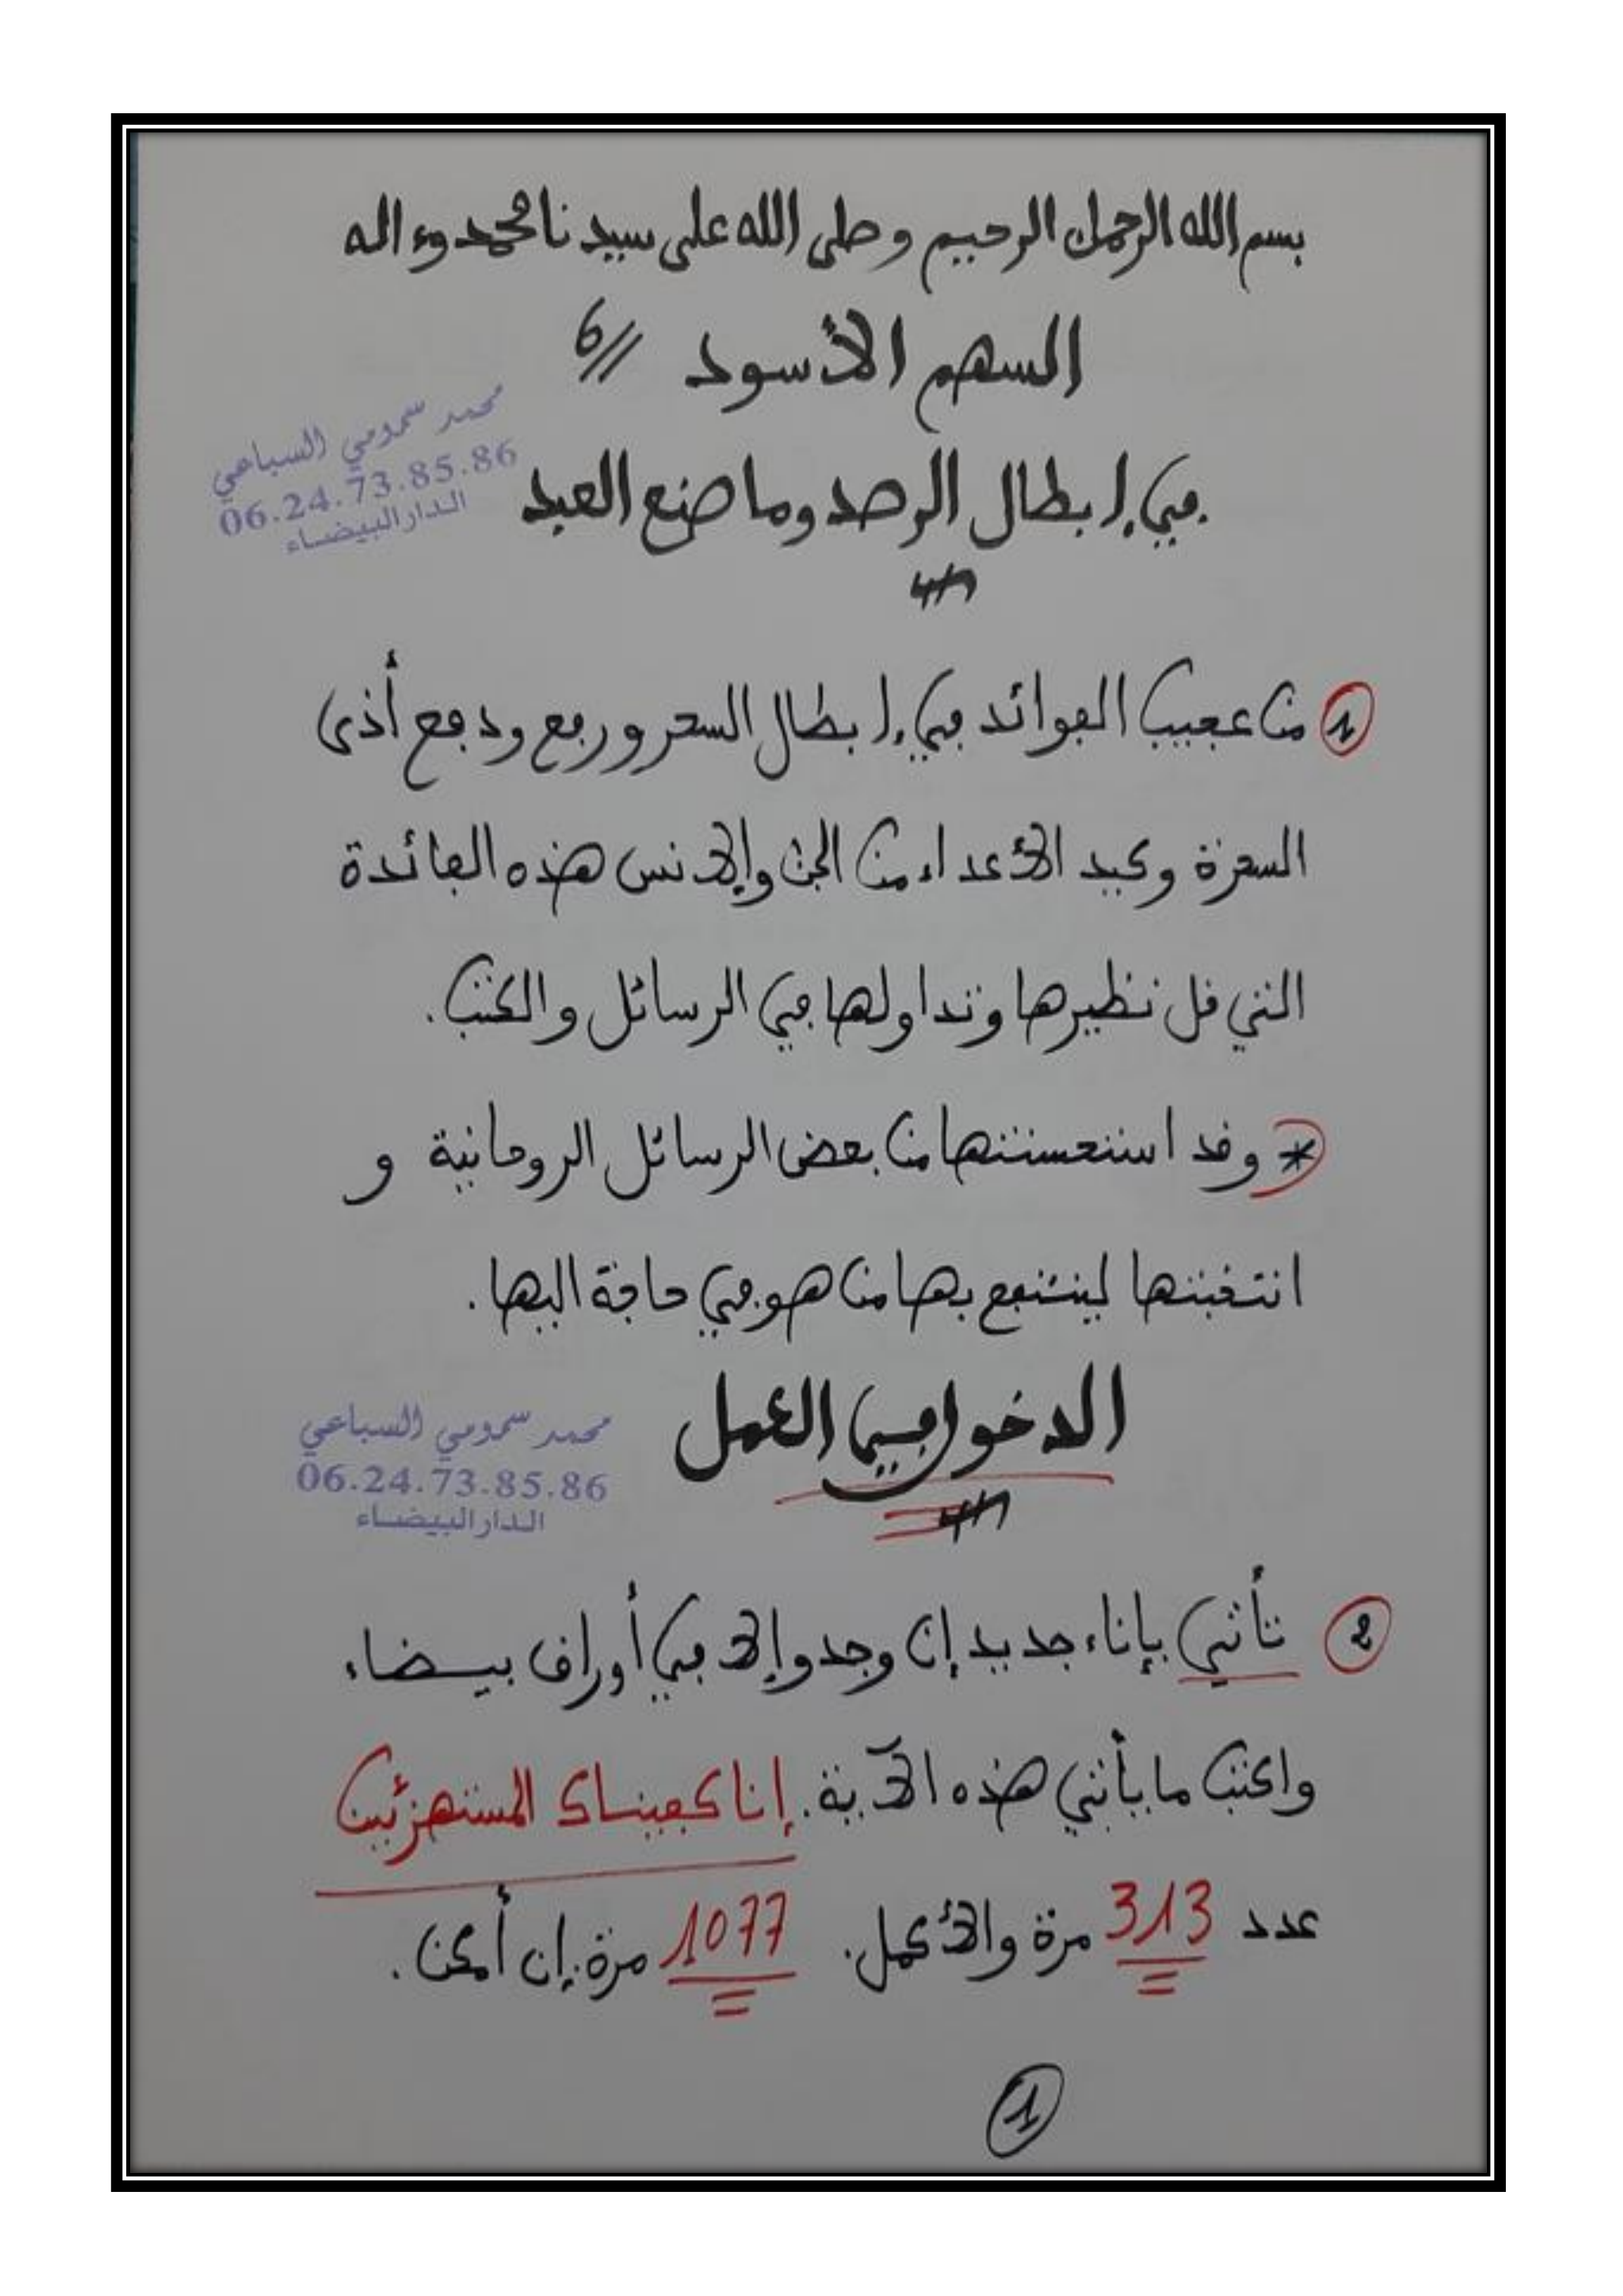 بسم الله الرحمن الرحيم وصلى الله على سيدنا محمد وءاله
السهم الأسود //6
محمد سمومي السباعي
06.24.73.85.86
الدار البيضاء
في إبطال الرصد وما صنع العبد
1 من عجيب الفوائد في إبطال السحر ورفع ودفع أذى
السحرة وكيد الأعداء من الجن والإنس هذه الفائدة
التي قل نظيرها وتداولها في الرسائل والكتب.
* وقد استحسنتها من بعض الرسائل الروحانية و
انتخبتها لينتفع بها من هو في حاجة اليها.
الدخول في العمل
محمد سمومي السباعي
06.24.73.85.86
الدار البيضاء
2 تأتي بإناء جديد إن وجد وإلا في أوراق بيضاء
واكتب ما يأتي هذه الآية. إنا كفيناك المستهزئين
عدد 313 مرة والأكمل. 1077 مرة إن أمكن.
1